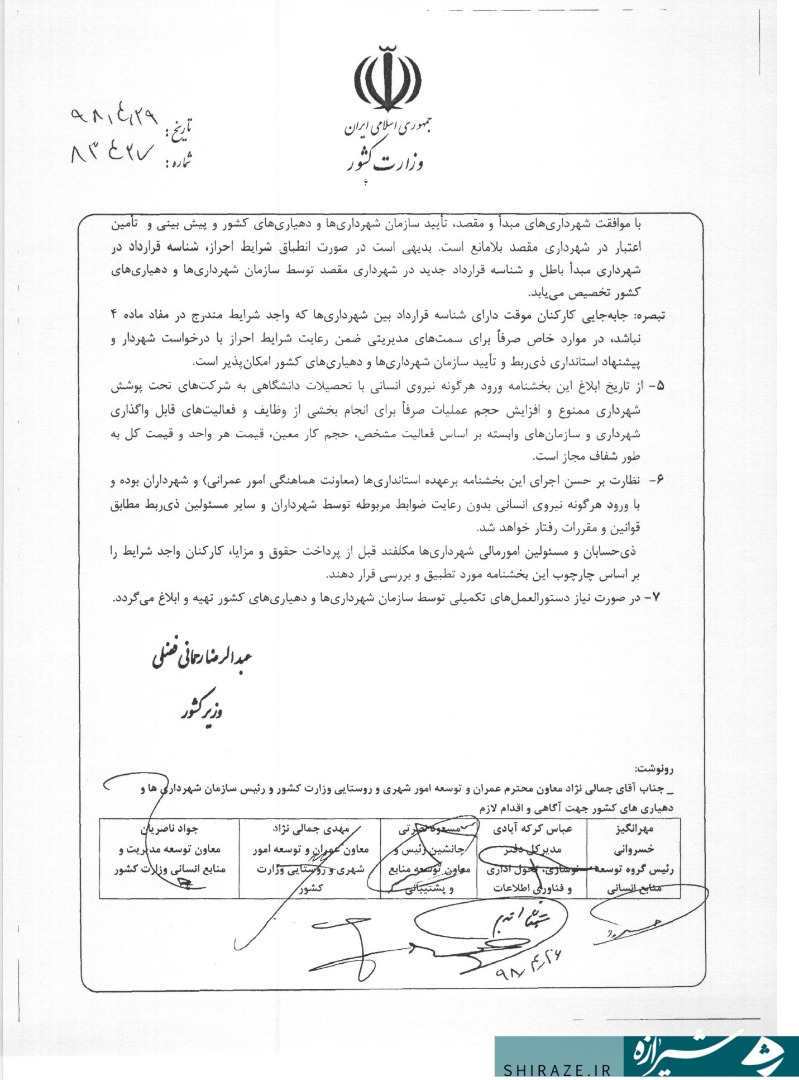 جمهوری اسلامی ایران
وزارت کشور
تاریخ: ۹۸/۴/۲۹
شماره: ۸۳۴۲۷
با موافقت شهرداری‌های مبدأ و مقصد، تأیید سازمان شهرداری‌ها و دهیاری‌های کشور و پیش بینی و تأمین
اعتبار در شهرداری مقصد بلامانع است. بدیهی است در صورت انطباق شرایط احراز، شناسه قرارداد در
شهرداری مبدأ باطل و شناسه قرارداد جدید در شهرداری مقصد توسط سازمان شهرداری‌ها و دهیاری‌های
کشور تخصیص می‌یابد.
تبصره: جابه‌جایی کارکنان موقت دارای شناسه قرارداد بین شهرداری‌ها که واجد شرایط مندرج در مفاد ماده ۴
نباشد، در موارد خاص صرفاً برای سمت‌های مدیریتی ضمن رعایت شرایط احراز با درخواست شهردار و
پیشنهاد استانداری ذی‌ربط و تأیید سازمان شهرداری‌ها و دهیاری‌های کشور امکان‌پذیر است.
۵- از تاریخ ابلاغ این بخشنامه ورود هرگونه نیروی انسانی با تحصیلات دانشگاهی به شرکت‌های تحت پوشش
شهرداری ممنوع و افزایش حجم عملیات صرفاً برای انجام بخشی از وظایف و فعالیت‌های قابل واگذاری
شهرداری و سازمان‌های وابسته بر اساس فعالیت مشخص، حجم کار معین، قیمت هر واحد و قیمت کل به
طور شفاف مجاز است.
۶- نظارت بر حسن اجرای این بخشنامه برعهده استانداری‌ها (معاونت هماهنگی امور عمرانی) و شهرداران بوده و
با ورود هرگونه نیروی انسانی بدون رعایت ضوابط مربوطه توسط شهرداران و سایر مسئولین ذی‌ربط مطابق
قوانین و مقررات رفتار خواهد شد.
ذی‌حسابان و مسئولین امورمالی شهرداری‌ها مکلفند قبل از پرداخت حقوق و مزایا، کارکنان واجد شرایط را
بر اساس چارچوب این بخشنامه مورد تطبیق و بررسی قرار دهند.
۷- در صورت نیاز دستورالعمل‌های تکمیلی توسط سازمان شهرداری‌ها و دهیاری‌های کشور تهیه و ابلاغ می‌گردد.
عبدالرضا رحمانی فضلی
وزیر کشور
رونوشت:
_ جناب آقای جمالی نژاد معاون محترم عمران و توسعه امور شهری و روستایی وزارت کشور و رئیس سازمان شهرداری ها و
دهیاری های کشور جهت آگاهی و اقدام لازم
مهرانگیز
خسروانی
رئیس گروه توسعه
منابع انسانی
عباس کرکه آبادی
مدیرکل دفتر
نوسازی، تحول اداری
و فناوری اطلاعات
مسعود نصرتی
جانشین رئیس و
معاون توسعه منابع
و پشتیبانی
مهدی جمالی نژاد
معاون عمران و توسعه امور
شهری و روستایی وزارت
کشور
جواد ناصریان
معاون توسعه مدیریت و
منابع انسانی وزارت کشور
۹۸/۴/۲۶
شیرازه
SHIRAZE.IR